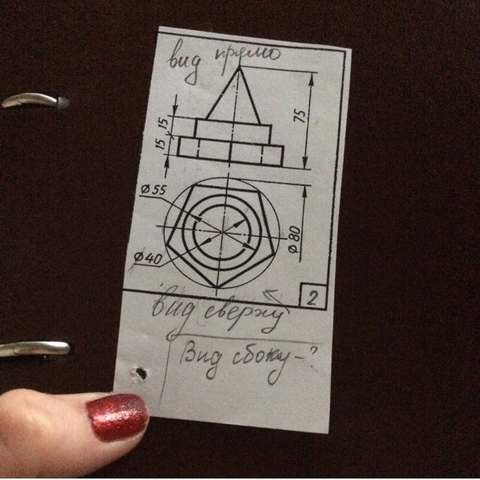 вид прямо
75
15
15
Ø55
Ø80
Ø40
2
вид сверху
Вид сбоку-?